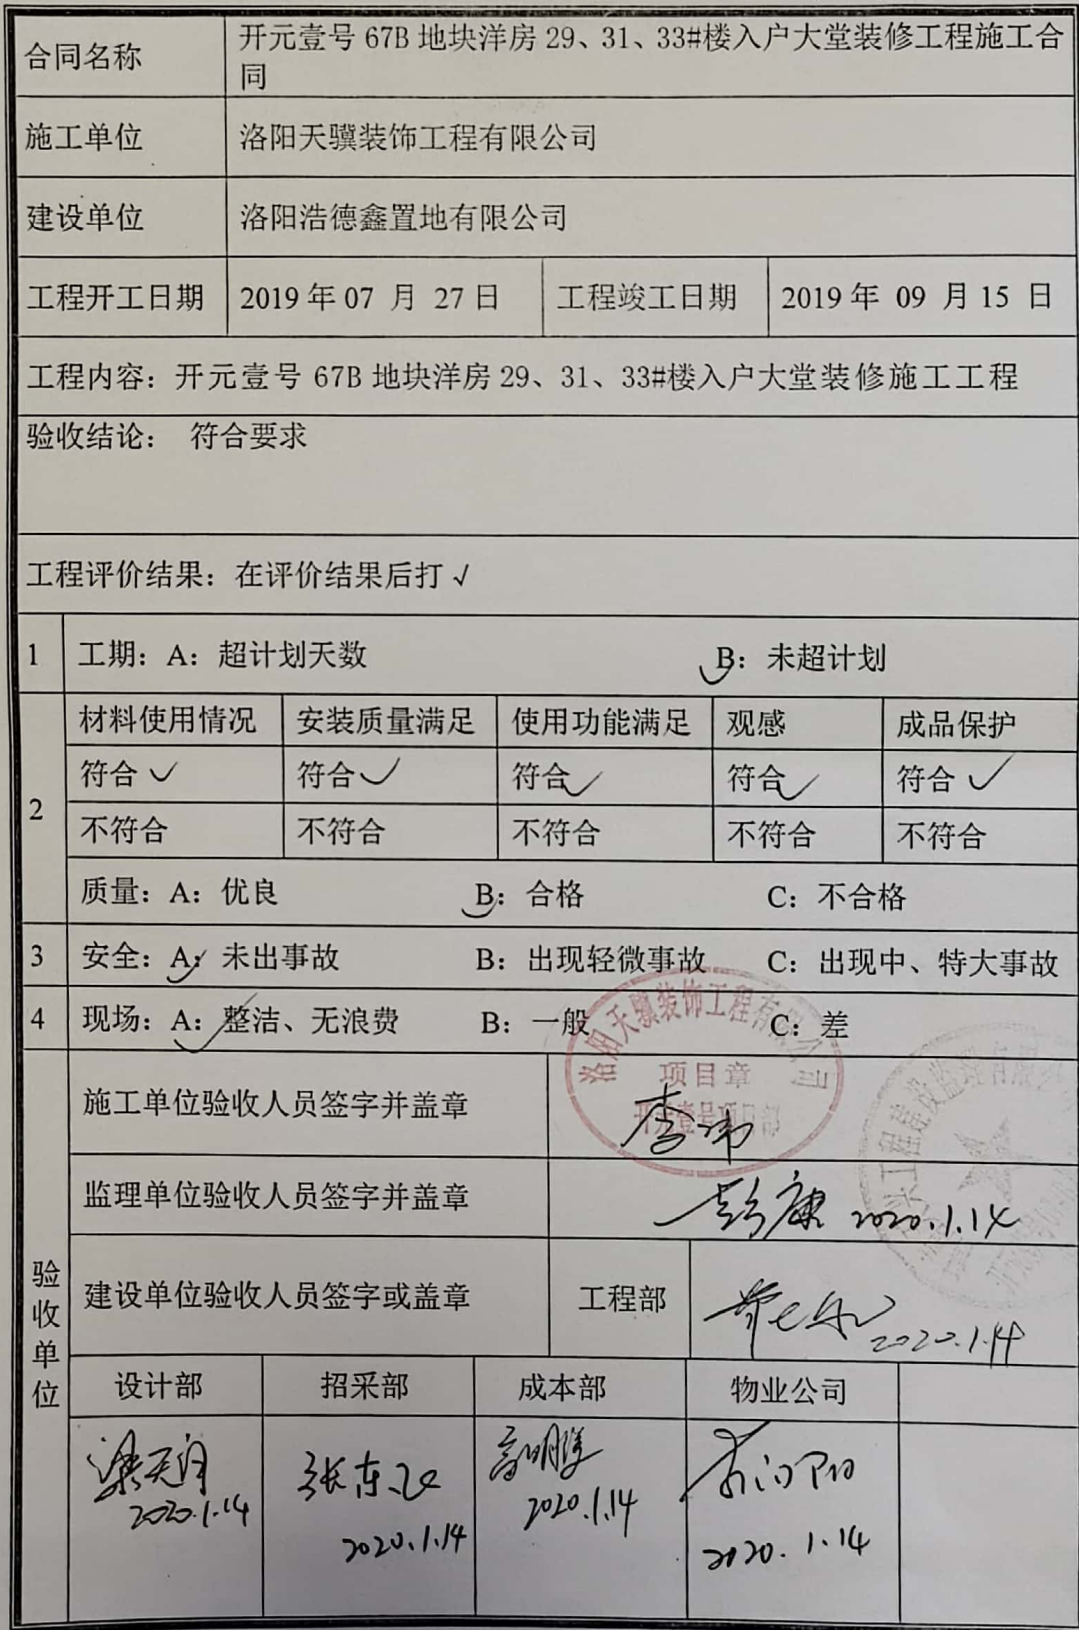 合同名称
开元壹号 67B 地块洋房 29、31、33#楼入户大堂装修工程施工合
同
施工单位
洛阳天骥装饰工程有限公司
建设单位
洛阳浩德鑫置地有限公司
工程开工日期 2019 年 07 月 27 日 工程竣工日期 2019 年 09 月 15 日
工程内容：开元壹号 67B 地块洋房 29、31、33#楼入户大堂装修施工工程
验收结论： 符合要求
工程评价结果：在评价结果后打 √
1 工期：A：超计划天数 B：未超计划
2
材料使用情况 安装质量满足 使用功能满足 观感 成品保护
符合 ✓ 符合 ✓ 符合 ✓ 符合 ✓ 符合 ✓
不符合 不符合 不符合 不符合 不符合
质量：A：优良 B：合格 C：不合格
3 安全：A：未出事故 B：出现轻微事故 C：出现中、特大事故
4 现场：A：整洁、无浪费 B：一般 C：差
洛阳天骥装饰工程有限公司
项目章
验收单位
施工单位验收人员签字并盖章
监理单位验收人员签字并盖章
彭康 2020.1.14
建设单位验收人员签字或盖章 工程部
2020.1.14
设计部 招采部 成本部 物业公司
梁天闰 张东飞 高明隆
2020.1.14 2020.1.14 2020.1.14 2020.1.14